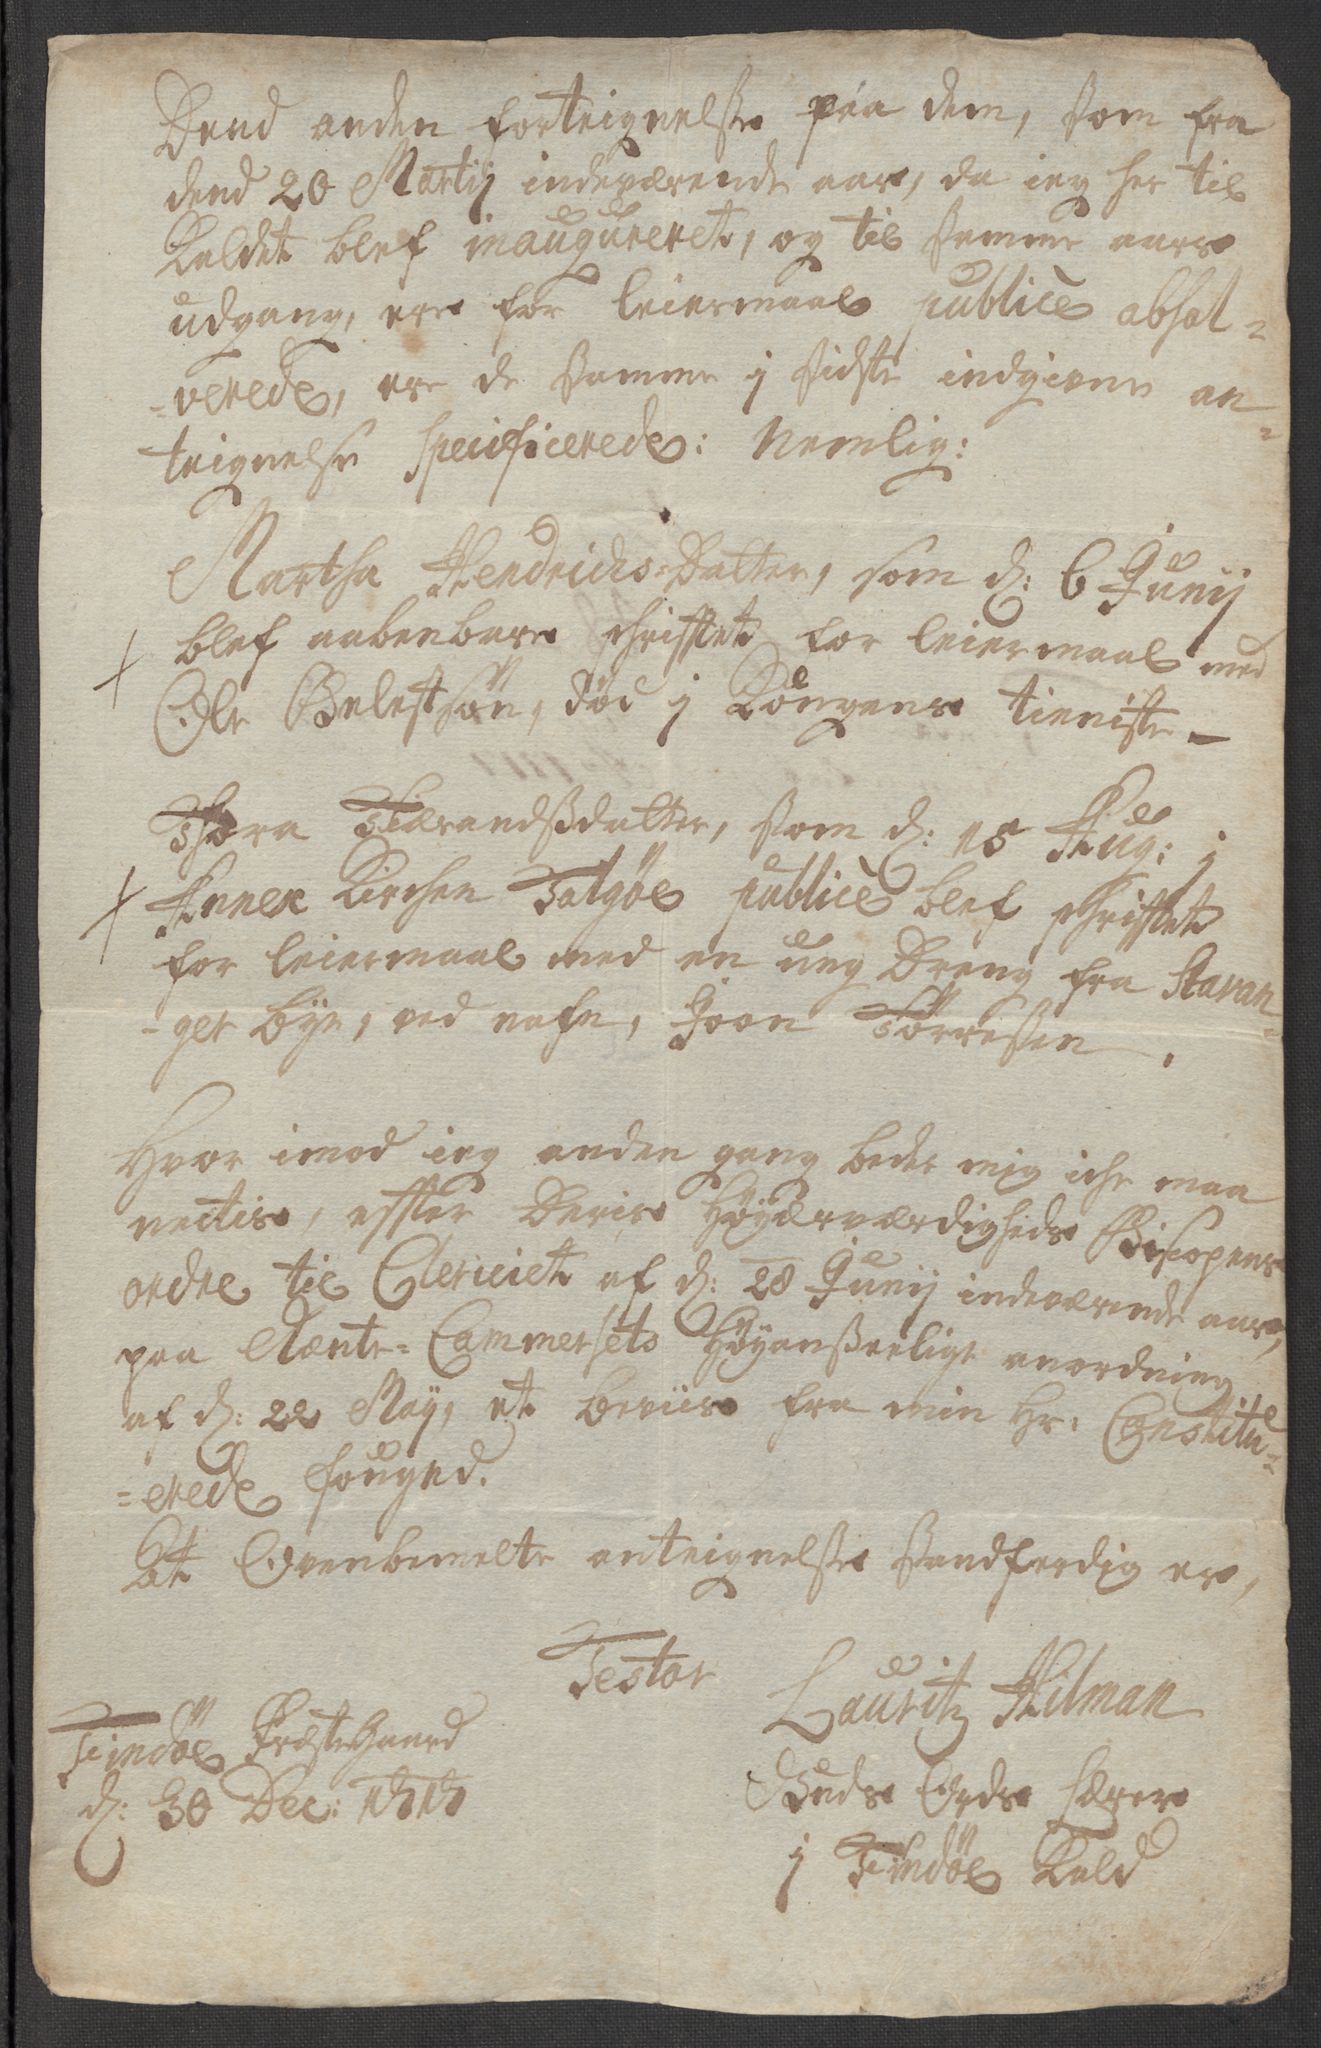 Dend anden forteignelse paa dem, som fra
dend 20 Martij indeværende aar, da ieg her til
Kaldet blef inaugureret, og til samme aars
udgang, ere for leiermaal publicè absol-
-verede, ere de samme j sidste indgivne an-
teignelse specificerede: Nemlig:
Martha Hendrichs-Datter, som d: 6 Junij
blef aabenbare schrifftet for leiermaal med
Ole Gulestsøn, død j Kongens tieniste -
Thora Tierandsdatter, som d: 15 Aug: j
Annex Kirchen Talgøe publicè blef schrifftet
for leiermaal med en ung Dreng fra Stavan-
-ger bye, ved nafn, Joon Tørresen.
Hvor imod ieg anden gang beder mig iche maa
nectis, effter Deris Høyærværdigheds Biscopens
ordre til Clericiet af d: 28 Junij indeværende aar,
paa Rente-Cammersets Høyanseelige anordning
af d: 22 Maÿ, et beviis fra min Hr. Constitu-
-erede fouged.
At Ovenbemelte anteignelse sandferdig er,
Testor
Lauritz Hilman
Guds Ords tiener
j Findøe Kald
Findøe Præstegaard
d: 30 Dec: 1717